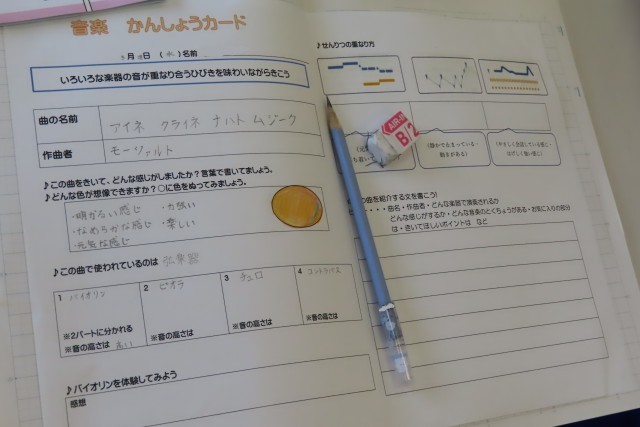 音楽 かんしょうカード
月 日 ( ) 名前
いろいろな楽器の音が重なり合うひびきを味わいながらきこう
曲の名前
アイネ クライネ ナハト ムジーク
作曲者
モーツァルト
♪この曲をきいて、どんな感じがしましたか？言葉で書いてましょう。
♪どんな色が想像できますか？○に色をぬってみましょう。
・明かるい感じ ・力強い
・なめらかな感じ ・楽しい
・元気な感じ
♪この曲で使われているのは 弦楽器
1 バイオリン
※2パートに分かれる
※音の高さは 高い
2 ビオラ
※音の高さは
3 チェロ
※音の高さは
4 コントラバス
※音の高さは
♪バイオリンを体験してみよう
感想
♪せんりつの重なり方
(静かで止まっている・動きがある)
(やさしく会話している感じ・はげしく強い感じ)
曲を紹介する文を書こう！
・・・・曲名・作曲者・どんな楽器で演奏されるか
どんな感じがするか・どんな音のとくちょうがある・お気に入りの部分
は・きいてほしいポイントは など